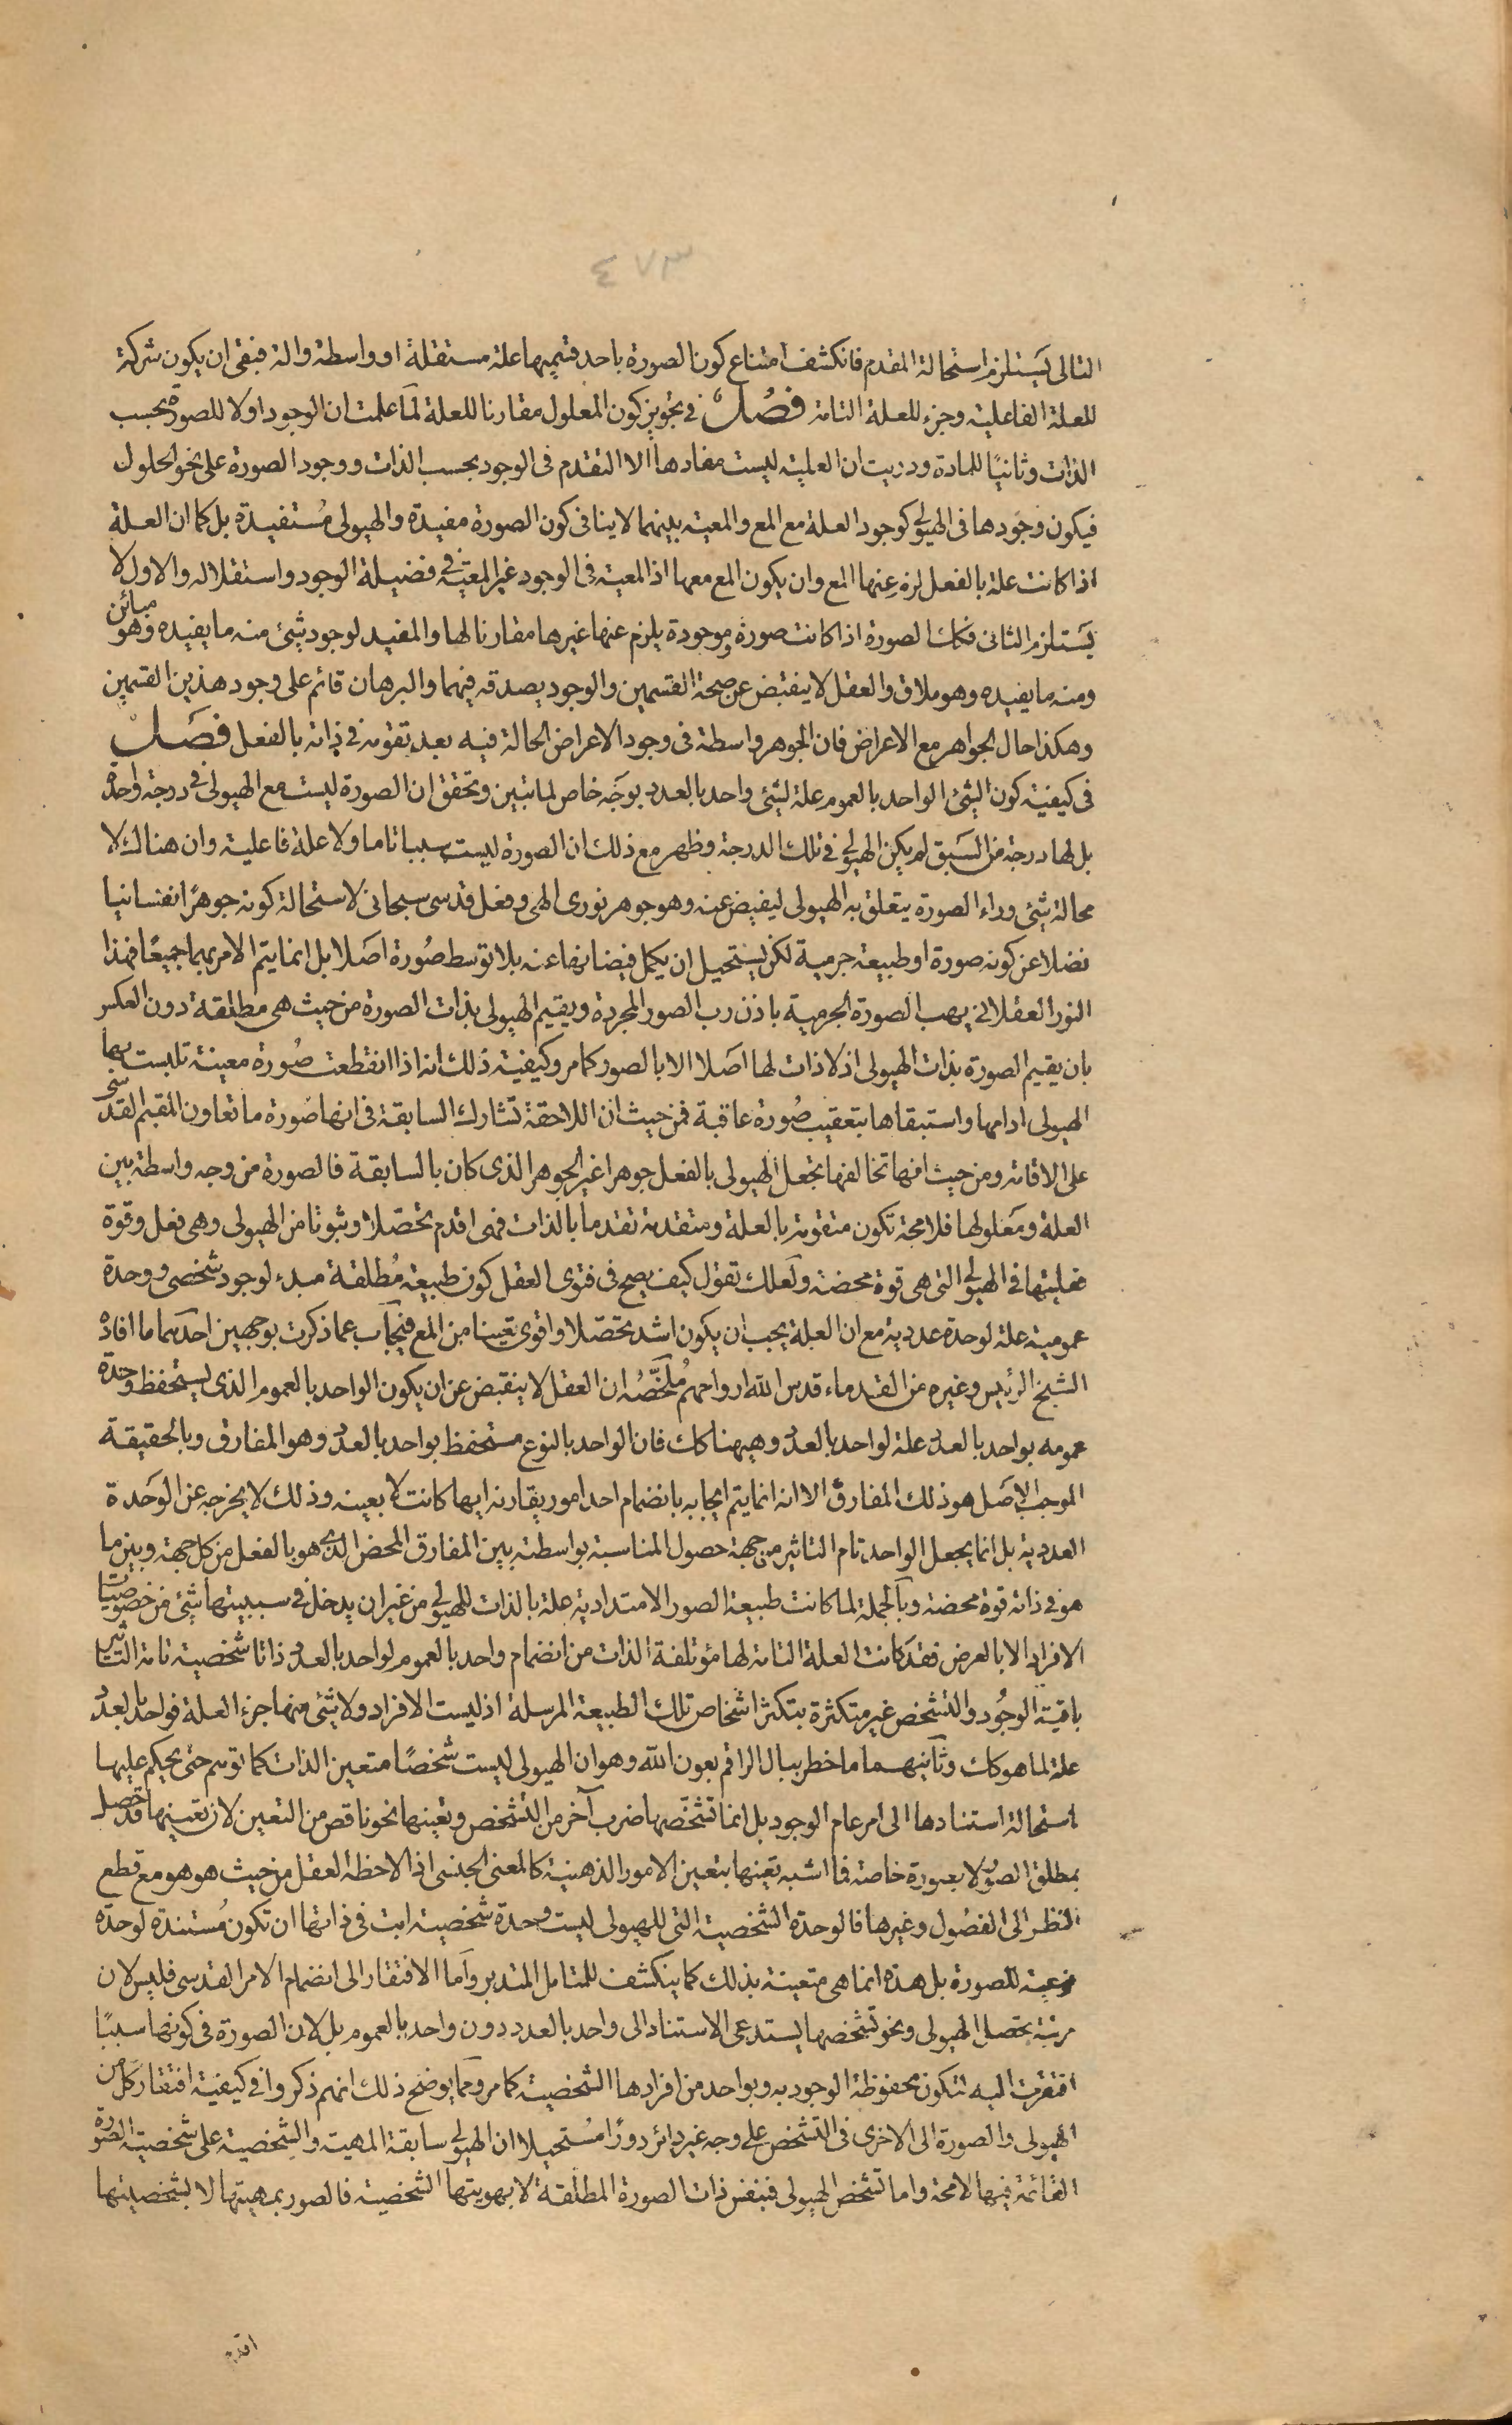 ٤٧٣
التالى يستلزم استحالة المقدم فانكشف امتناع كون الصورة باحد قسميها علة مستقلة او واسطة والة فبقى ان يكون شركة
للعلة الفاعلية وجزء للعلة التامة فصل فى تجويز كون المعلول مقارنا للعلة لما علمت ان الوجود اولا للصورة بحسب
الذات وثانيًا للمادة ودريت ان العلية ليست مفادها الا التقدم فى الوجود بحسب الذات ووجود الصورة على نحو الحلول
فيكون وجودها فى الهيولى كوجود العلة مع المع والمعية بينهما لا ينافى كون الصورة مفيدة والهيولى مستفيدة بل كما ان العلة
اذا كانت علة بالفعل لزم عنها المع وان يكون المع معها اذ المعية فى الوجود غير المعية فى فضيلة الوجود واستقلاله والاول لا
يستلزم الثانى فكك الصورة اذا كانت صورة وموجودة يلزم عنها غيرها مقارنا لها والمفيد لوجود شئ منه ما يفيده وهو مبائن
ومنه ما يفيده وهو ملاق والعقل لا ينقبض عن صحة القسمين والوجود يصدقه فيهما والبرهان قائم على وجود هذين القسمين
وهكذا حال الجواهر مع الاعراض فان الجوهر واسطة فى وجود الاعراض الحالة فيه بعد تقومه فى ذاته بالفعل فصل
فى كيفية كون الشئ الواحد بالعموم علة لشئ واحد بالعدد بوجه خاص لما تبين وتحقق ان الصورة ليست مع الهيولى فى درجة واحدة
بل لها درجة من السبق لم يكن الهيولى فى تلك الدرجة وظهر مع ذلك ان الصورة ليست سببا تاما ولا علة فاعلية وان هناك لا
محالة شئ وراء الصورة يتعلق به الهيولى ليفيض عنه وهو جوهر نورى الهى وفعل قدسى سبحانى لاستحالة كونه جوهرًا نفسانيا
فضلا عن كونه صورة او طبيعة جرمية لكن يستحيل ان يكمل فيضانها عنه بلا توسط صورة اصلا بل انما يتم الامر بهما جميعًا فهذا
النور العقلانى يهب الصورة الجرمية باذن رب الصور المجردة ويقيم الهيولى بذات الصورة من حيث هى مطلقة دون العكس
بان يقيم الصورة بذات الهيولى اذ لا ذات لها اصلا الا بالصور كما مر وكيفية ذلك انه اذا انقطعت صورة معينة تلبست بها
الهيولى ادامها واستبقاها بتعقيب صورة عاقبة فمن حيث ان اللاحقة تشارك السابقة فى انها صورة ما تعاون المقيم القدسى
على الاقامة ومن حيث انها تخالفها تجعل الهيولى بالفعل جوهرا غير الجوهر الذى كان بالسابقة فالصورة من وجه واسطة بين
العلة ومعلولها فلا محة تكون متقومة بالعلة ومتقدمة تقدما بالذات فهى اقدم تحصلا وثبوتا من الهيولى وهى فعل وقوة
فعليتها فى الهيولى التى هى قوة محضة ولعلك تقول كيف يصح فى فتوى العقل كون طبيعة مطلقة مبدء لوجود شخصى ووحدة
عمومية علة لوحدة عددية مع ان العلة يجب ان يكون اشد تحصلا واقوى تعينا من المع فنجاب عما ذكرت بوجهين احدهما ما افاده
الشيخ الرئيس وغيره من القدماء قدس الله ارواحهم ملخصه ان العقل لا ينقبض عن ان يكون الواحد بالعموم الذى يستحفظ وحدة
عمومه بواحد بالعدد علة لواحد بالعدد وهيهنا كك فان الواحد بالنوع مستحفظ بواحد بالعدد وهو المفارق وبالحقيقة
الموجب الاصل هو ذلك المفارق الا انه انما يتم ايجابه بانضمام احد امور يقارنه ايها كانت لا بعينه وذلك لا يخرجه عن الوحدة
العددية بل انما يجعل الواحد تام التاثير من جهة حصول المناسبة بواسطته بين المفارق المحض الذى هو بالفعل من كل جهة وبين ما
هو فى ذاته قوة محضة وبالجملة لما كانت طبيعة الصور الامتدادية علة بالذات للهيولى من غير ان يدخل فى سببيتها شئ من خصوصيات
الافراد الا بالعرض فقد كانت العلة التامة لها مؤتلفة الذات من انضمام واحد بالعموم لواحد بالعدد ذاتا شخصية تامة التاثير
باقية الوجود والتشخص غير متكثرة بتكثر اشخاص تلك الطبيعة المرسلة اذ ليست الافراد ولا شئ منها جزء العلة فواحد بالعدد
علة لما هو كك وثانيهما ما خطر ببال الراقم بعون الله وهو ان الهيولى ليست شخصًا متعين الذات كما توهم حتى يحكم عليها
استحالة استنادها الى امر عام الوجود بل انما تشخصها ضرب آخر من التشخص وتعينها نحو ناقص من التعين لان تعينها قد حصل
بمطلق الصور لا بصورة خاصة فما اشبه تعينها بتعين الامور الذهنية كالمعنى الجنسى اذا لاحظه العقل من حيث هو هو مع قطع
النظر الى الفصول وغيرها فالوحدة الشخصية التى للهيولى ليست وحدة شخصية ابت فى ذاتها ان تكون مستندة لوحدة
نوعية للصورة بل هذه انما هى متعينة بذلك كما ينكشف للمتامل المتدبر واما الافتقار الى انضمام الامر القدسى فليس لان
مرتبة تحصل الهيولى ونحو تشخصها يستدعى الاستناد الى واحد بالعدد دون واحد بالعموم بل لان الصورة فى كونها سببًا
افتقرت اليه لتكون محفوظة الوجود به وبواحد من افرادها الشخصية كما مر ومما يوضح ذلك انهم ذكروا فى كيفية افتقار كل من
الهيولى والصورة الى الاخرى فى التشخص على وجه غير دائر دورًا مستحيلا ان الهيولى سابقة المهية والشخصية على شخصية الصورة
القائمة فيها لا محة واما تشخص الهيولى فبنفس ذات الصورة المطلقة لا بهويتها الشخصية فالصور بمهيتها لا بشخصيتها
اقدم